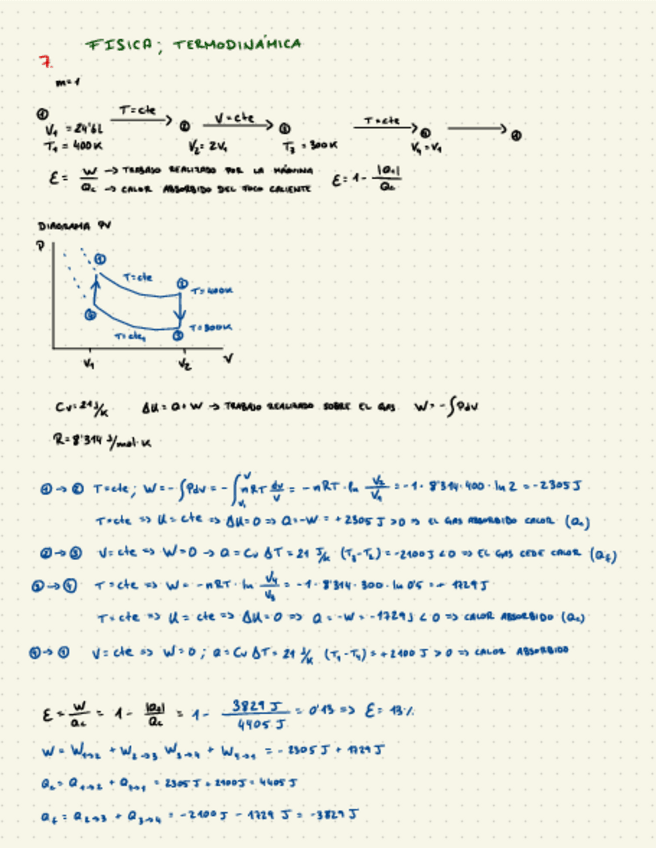 FISICA; TERMODINÁMICA
7.
m=1
① T=cte ② V=cte ③ T=cte ④ ①
V₁ = 24'6L V₂=2V₁ T₃=300K V₄=V₁
T₁ = 400K
ε = W/Qc → TRABAJO REALIZADO POR LA MÁQUINA → CALOR ABSORBIDO DEL FOCO CALIENTE ε = 1 - |Qf|/Qc
DIAGRAMA PV
P
① T=cte ② T=400K
④ T=cte, ③ T=300K
V₁ V₂ V
Cv=21 J/K ΔU = Q+W → TRABAJO REALIZADO SOBRE EL GAS W=-∫PdV
R=8'314 J/mol·K
①→② T=cte; W=-∫Pdv = -∫nRT dv/V = -nRT·ln V₂/V₁ = -1·8'314·400·ln2 = -2305J
T=cte => U=cte => ΔU=0 => Q=-W = +2305J >0 => EL GAS ABSORBIDO CALOR (Qc)
②→③ V=cte => W=0 → Q=Cv ΔT = 21 J/K (T₃-T₂) = -2100J <0 => EL GAS CEDE CALOR (Qf)
③→④ T=cte => W=-nRT·ln V₄/V₃ = -1·8'314·300·ln 0'5 = + 1729J
T=cte => U=cte => ΔU=0 => Q=-W=-1729J <0 => CALOR ABSORBIDO (Qc)
④→① V=cte => W=0; Q=Cv ΔT = 21 J/K (T₁-T₄) = +2100 J >0 => CALOR ABSORBIDO
ε = W/Qc = 1 - |Qf|/Qc = 1 - 3829 J/4405 J = 0'13 => ε = 13%
W = W₁→₂ + W₂→₃ W₃→₄ + W₄→₁ = -2305J + 1729J
Qc = Q₁→₂ + Q₄→₁ = 2305J + 2100J = 4405J
Qf = Q₂→₃ + Q₃→₄ = -2100J - 1729 J = -3829J